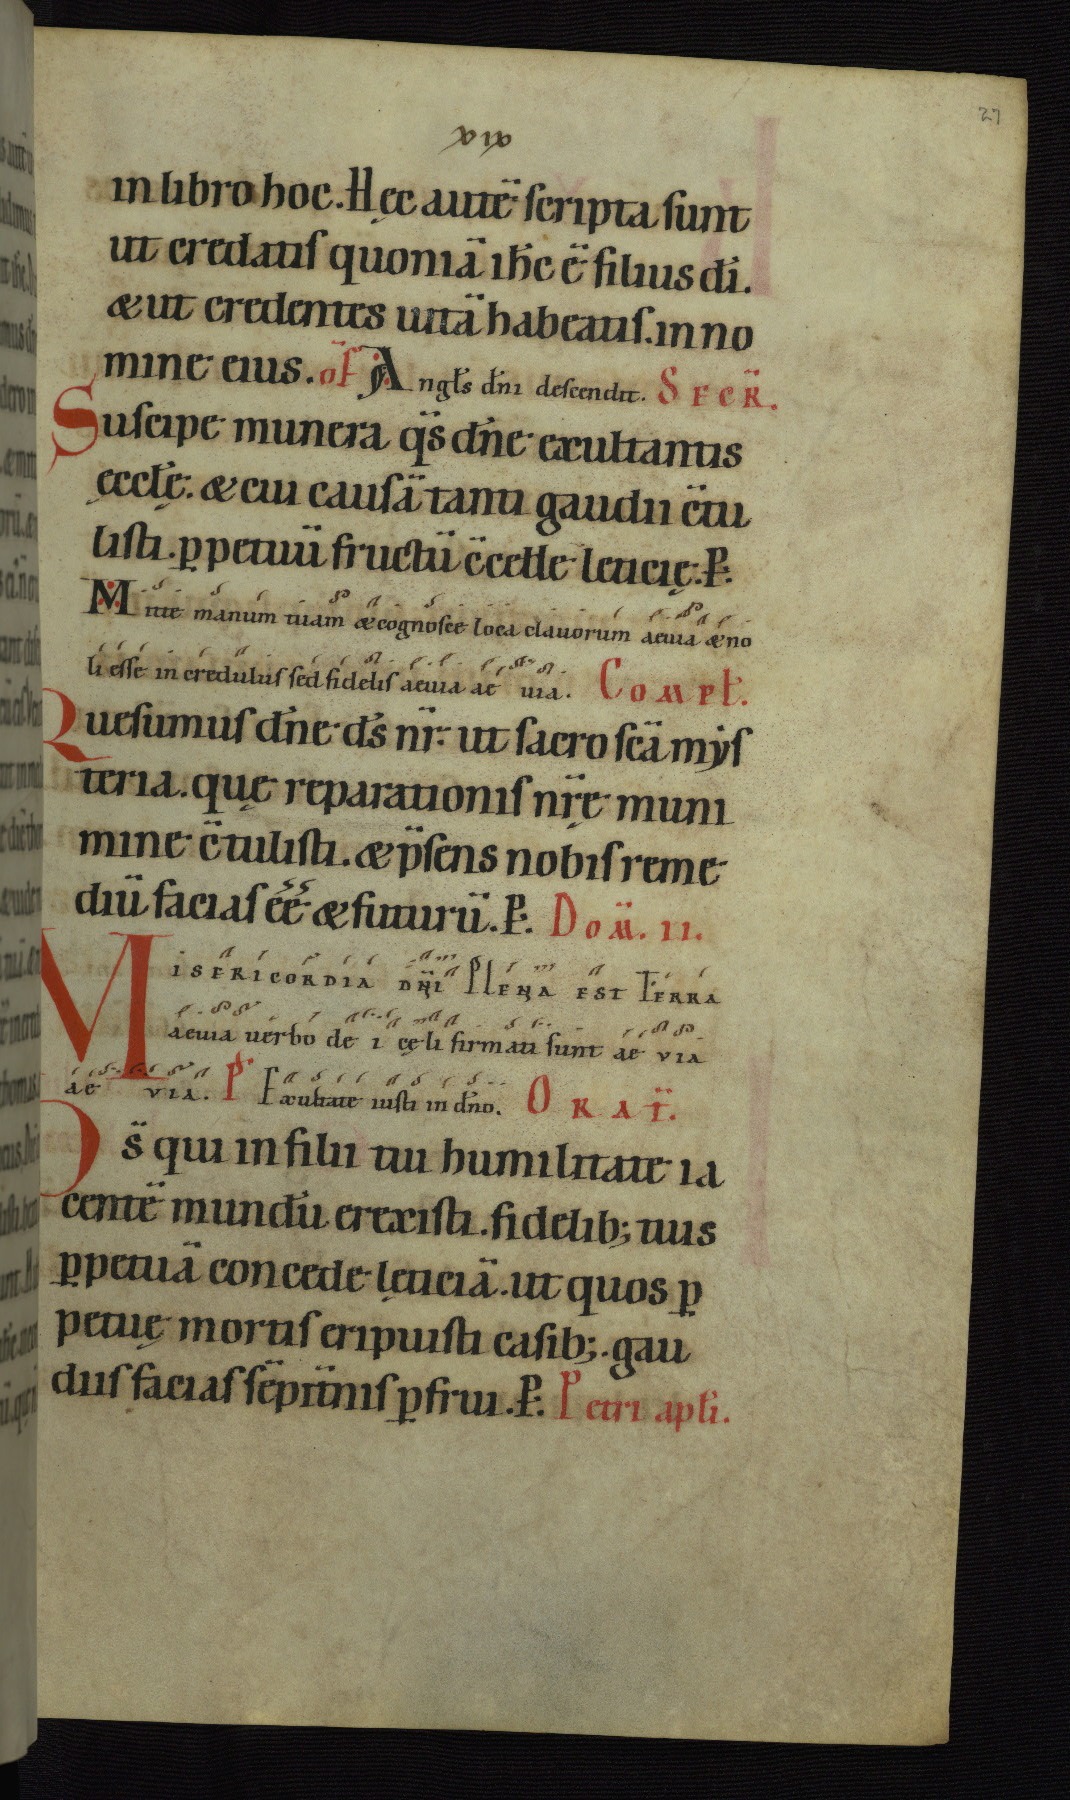 27
xıx
in libro hoc. Hęc autē scripta sunt
ut credatis quoniā ihc̄ ē filius dī.
& ut credentes uitā habeatis. in no
mine eius. of Angls̄ dn̄i descendit. Secr̄.
Suscipe munera qs̄ dn̄e exultantis
ęcclę̄. & cui causā tanti gaudii c̄tu
listi. ꝑpetuū fructū c̄cede lęticię. P̄.
Mitte manum tuam & cognosce loca clauorum aeuia & no
li esse incredulus sed fidelis aeuia ae uia. Compl̄.
Quesumus dn̄e ds̄ nr̄. ut sacrosc̄a mẏs
teria. quę reparationis nr̄ę muni
mine c̄tulisti. & p̄sens nobis reme
diū facias ēē & futurū. P̄. Dom̄. ıı.
Misericordia dn̄i plena est terra
aeuia uerbo de i cęli firmati sunt ae uia
ae uia. Ps̄ Exultate iusti in dn̄o. Orat̄.
Ds̄ qui in filii tui humilitate ia
centē mundū erexisti. fidelib; tuis
ꝑpetuā concede lęticiā. ut quos ꝑ
petuę mortis eripuisti casib;. gau
diis facias sēpit̄nis ꝑfrui. P̄. Petri apl̄i.